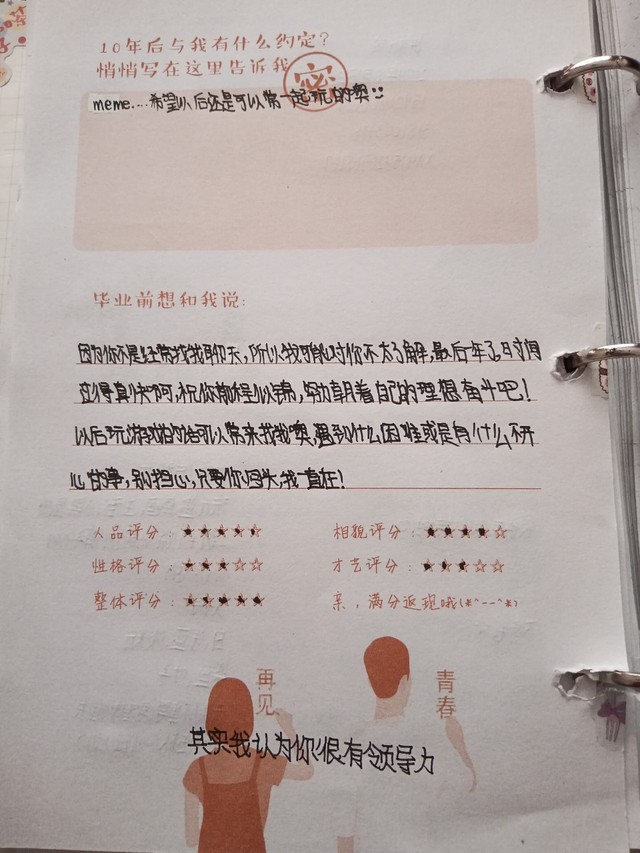 10年后与我有什么约定?
悄悄写在这里告诉我
密
meme....希望以后还是可以常一起玩的噢
毕业前想和我说:
因为你不是经常找我聊天,所以我可能对你不太了解,最后年了时间
过得真快啊,祝你前程似锦,努力朝着自己的理想奋斗吧!
以后玩游戏的话可以常来找我噢,遇到什么困难或是有什么不开
心的事,别担心,只要你回头,我一直在!
人品评分: 相貌评分:
性格评分: 才艺评分:
整体评分: 亲,满分返现哦(*^--^*)
再见 青春
其实我认为你很有领导力